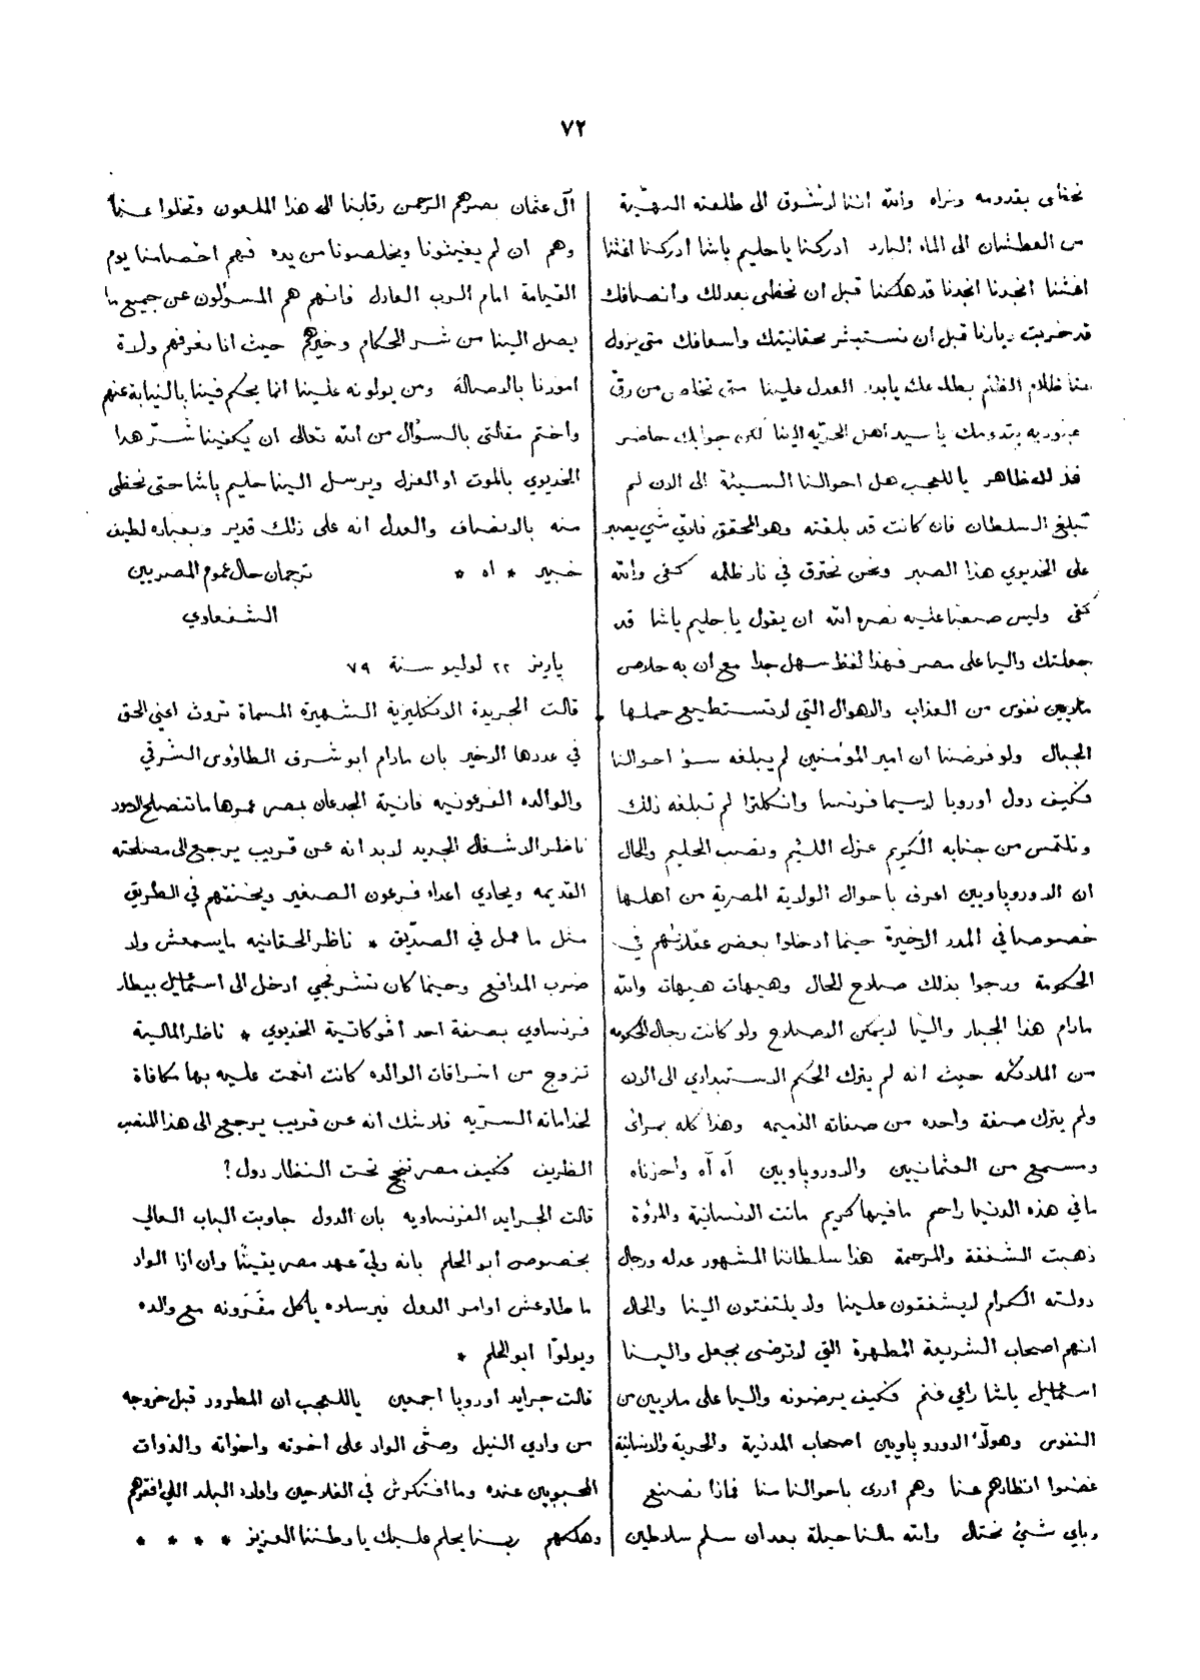 ٧٢
نحظى بقدومه ونراه والله اننا لاشوق الى طلعته البهيّة
من العطشان الى الماء البارد ادركنا يا حليم باشا ادركنا اغثنا
اغثنا انجدنا انجدنا قد هلكنا قبل ان نحظى بعدلك وانصافك
قد خربت ديارنا قبل أن نستبشر بحقانيتك واسعافك متى يزول
عنا ظلام الظلم بطلعتك يا بدر العدل علينا متى نخلص من رقّ
عبوديه بقدومك يا سيد أهل الحريّه الينا لكن جوابك حاضر
فذلك ظاهر يا للعجب هل احوالنا السيئة الى الان لم
تبلغ السلطان فان كانت قد بلغته وهو المحقق فلايّ شي يصبر
على الخديوي هذا الصبر ونحن نحترق في نار ظلمه كفى والله
كفى وليس صعبا عليه نصره الله ان يقول يا حليم باشا قد
جعلتك واليا على مصر فهذا لفظ سهل جدا مع أن به خلاص
ملايين نفوس من العذاب والاهوال التي لا تستطيع حملها
الجبال ولو فرضنا ان امير المؤمنين لم يبلغه سوء احوالنا
فكيف دول اوروبا لا سيما فرنسا وانكلترا لم تبلغه ذلك
وتلتمس من جنابه الكريم عزل اللئيم ونصب الحليم والحال
ان الاوروپاويين اعرف باحوال الولاية المصرية من اهلها
خصوصا في المدد الاخيرة حينما أدخلوا بعض عقلائهم في
الحكومة ورجوا بذلك صلاح الحال وهيهات هيهات والله
مادام هذا الجبار واليا لا يمكن الاصلاح ولو كانت رجال الحكومه
من الملائكه حيث انه لم يترك الحكم الاستبدادي الى الان
ولم يترك صفة واحده من صفاته الذميمه وهذا كله بمرأى
ومسمع من العثمانيين والاوروپاويين آه آه واحزناه
ما في هذه الدنيا راحم ما فيها كريم ماتت الانسانية والمروّة
ذهبت الشفقة والمرحمة هذا سلطاننا المشهور عدله ورجال
دولته الكرام لا يشفقون علينا ولا يلتفتون الينا والحال
انهم اصحاب الشريعة المطهرة التي لا ترضى بجعل والينا
اسماعيل باشا راعي غنم فكيف يرضونه واليا على ملايين من
النفوس وهولاء الاوروپاويين اصحاب المدنية والحرية والانسانية
غضوا انظارهم عنا وهم ادرى باحوالنا منا فماذا نصنع
وباي شيء نحتال والله مالنا حيلة بعد ان سلم سلاطين
آل عثمان بصرهم الرحمن رقابنا الى هذا الملعون وتخلوا عنا
وهم ان لم يغيثونا ويخلصونا من يده فهم اخصامنا يوم
القيامة امام الرب العادل فانهم هم المسؤلون عن جميع ما
يصل الينا من شر الحكام وخيرهم حيث انا نعرفهم ولاة
امورنا بالاصالة ومن يولونه علينا انما يحكم فينا بالنيابة عنهم
واختم مقالتى بالسؤال من الله تعالى ان يكفينا شرّ هدا
الخديوي بالموت او العزل ويرسل الينا حليم باشا حتى نحظى
منه بالانصاف والعدل انه على ذلك قدير وبعباده لطيف
خبير * اه * ترجمان حال عموم المصريين
الشفعاوي
پاريز ٢٢ لوليو سنة ٧٩
قالت الجريدة الانكليزية الشهيرة المسماة تروث اعني الحق
في عددها الاخير بان مادام ابو شرف الطاؤوس الشرقي
والوالده الفرعونيه فانية الجدعان بمصر عمرها ما تنصلح الامور
ناظر الاشغال الجديد لا بد انه عن قريب يرجع الى مصلحته
القديمه ويحادي اعداء فرعون الصغير ويخنقهم في الطريق
مثل ما عمل في الصدّيق * ناظر الحقانيه ما يسمعش ولا
ضرب المدافع وحينما كان تشرنجي ادخل الى اسماعيل بيطار
فرنساوي بصفة احد افوكاتية الخديوي * ناظر المالية
تزوج من اشراقات الوالده كانت انعمت عليه بها مكافاة
لخداماته السرّيه فلا شك انه عن قريب يرجع الى هذا المنصب
الظريف فكيف مصر تنجح تحت النظار دول؟
قالت الجرايد الفرنساويه بان الدول جاوبت الباب العالي
بخصوص أبو الحلم بانه وليّ عهد مصر يقيناً وان اذا الواد
ما طاوعش اوامر الدول فيرسلوه يأكل مقرونه مع والده
ويولوّا ابو الحلم *
قالت جرايد اوروبا اجمعين ياللعجب ان المطرور قبل خروجه
من وادي النيل وصّى الواد على اخوته واخواته والذوات
المحبوبين عنده وما افتكرش في الفلاحين واولاد البلد اللي افقرهم
وهلكهم ربنا يحلم عليك يا وطننا العزيز * * * *